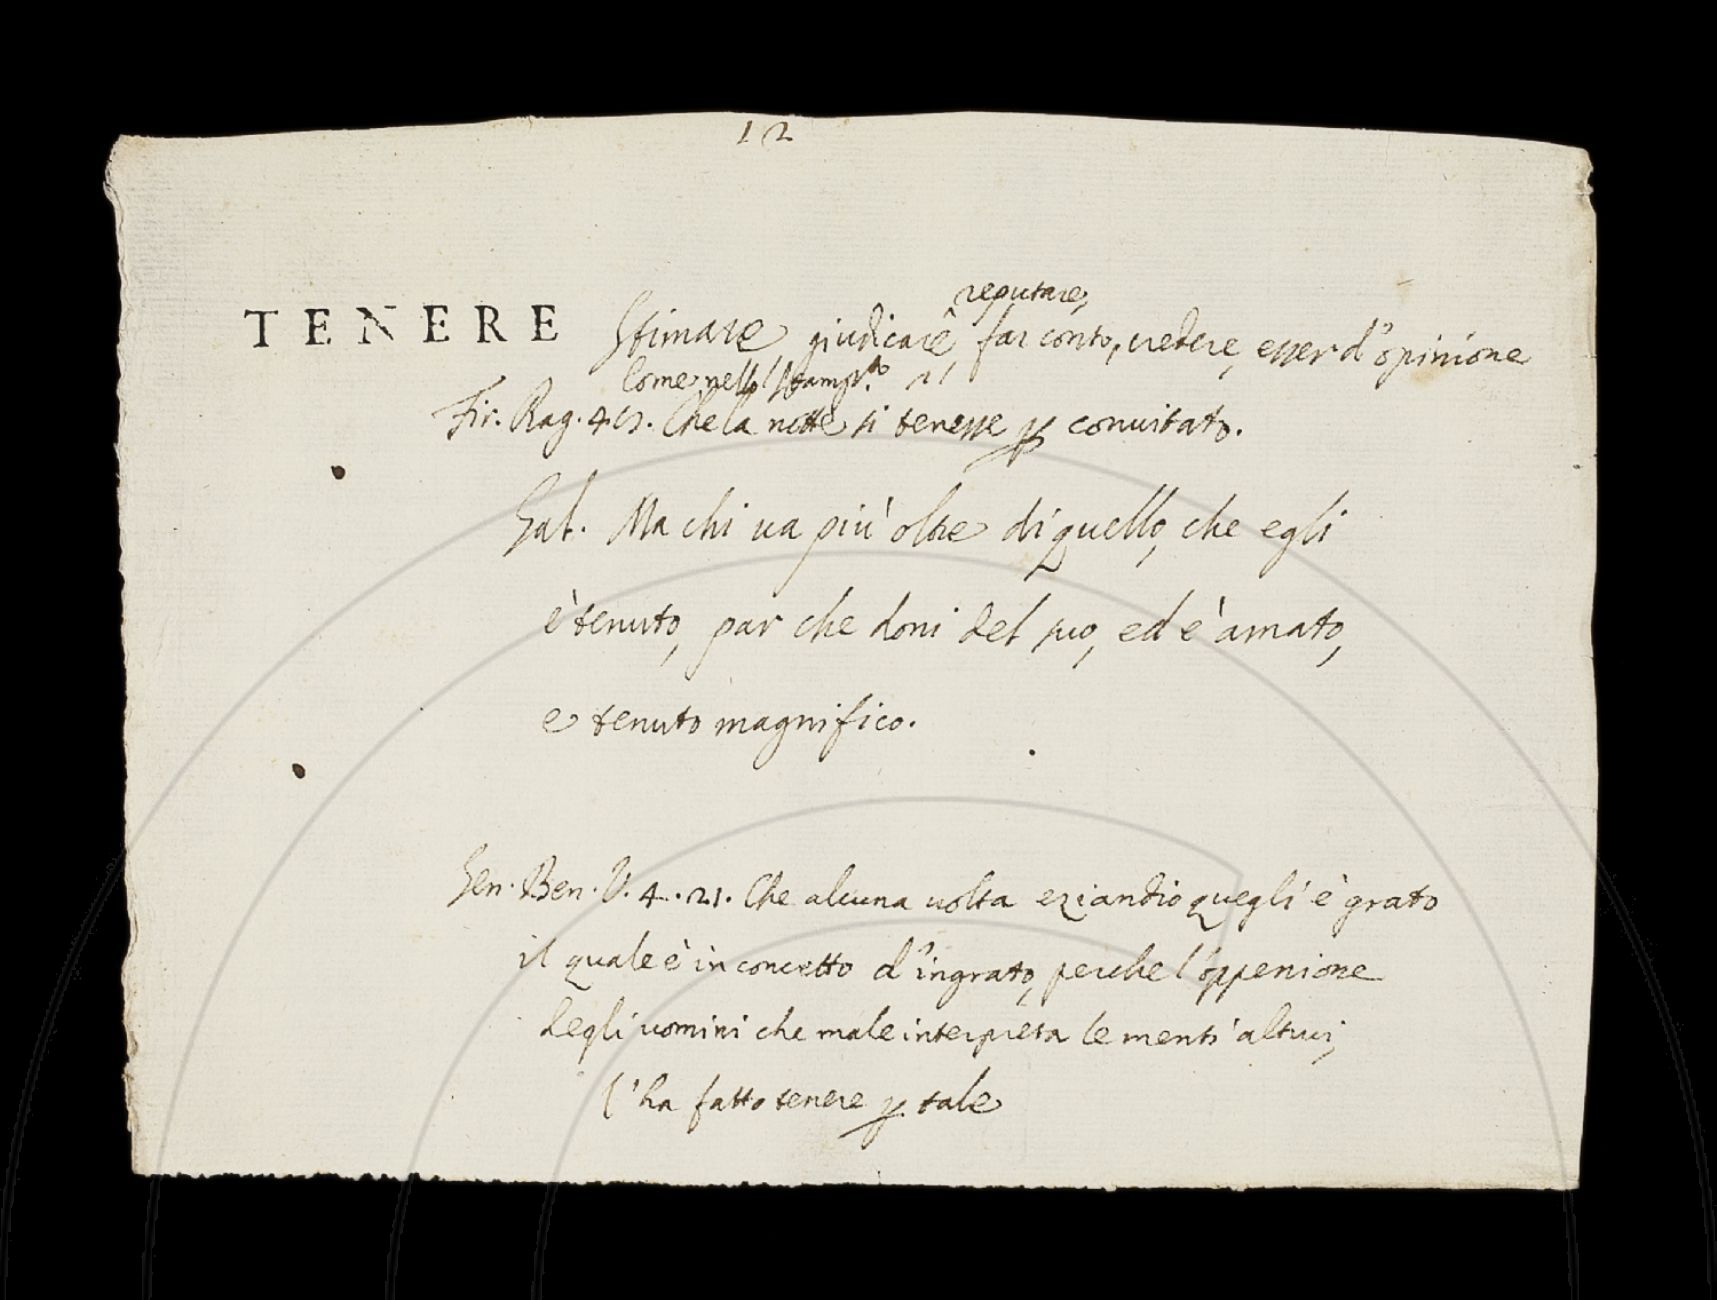 12
reputare,
TENERE Stimare giudicare, far conto, credere, esser d'opinione
Come nello stamp.to 21
Fir. Rag. 46. Che la notte si tenesse p convitato.
Gal. Ma chi va più oltre di quello, che egli
è tenuto, par che doni del suo, ed è amato,
e tenuto magnifico.
Sen. Ben. V. 4. 21. Che alcuna volta eziandio quegli è grato
il quale è in concetto d'ingrato, perche l'oppenione
degli uomini che male interpreta le menti altrui,
l'ha fatto tenere p tale